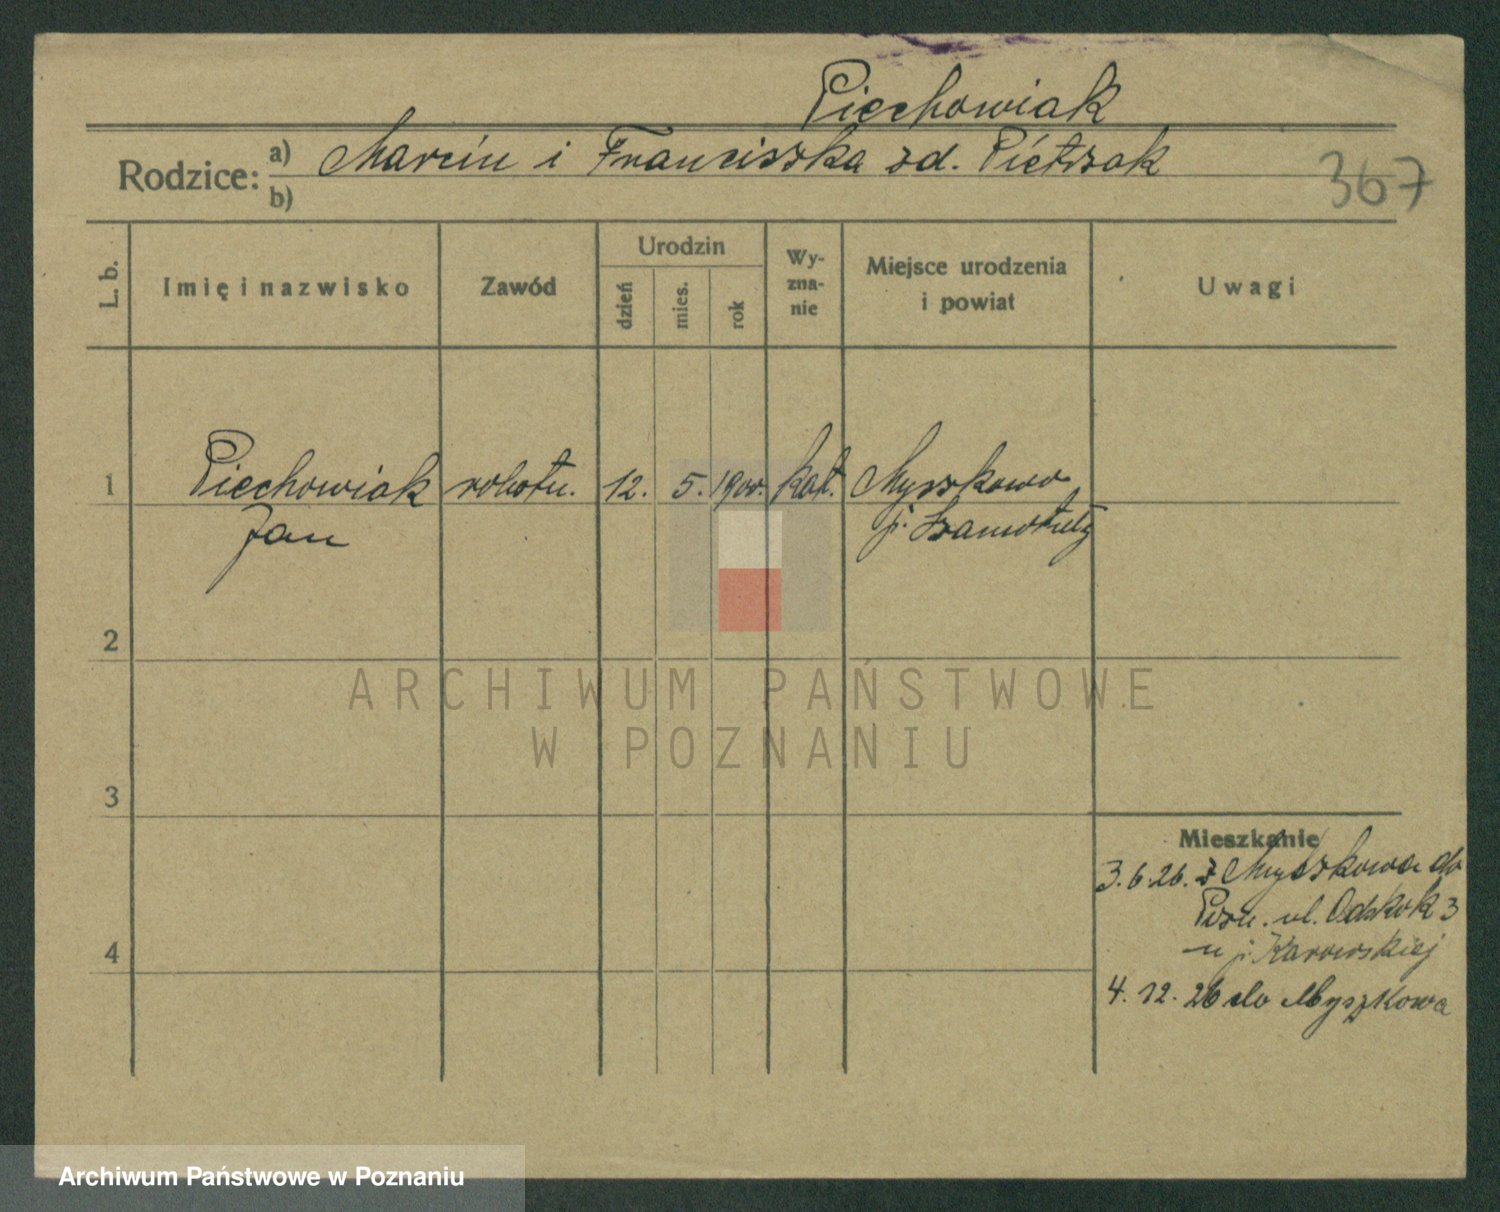 Piechowiak
Rodzice: a) Marcin i Franciszka zd. Pietrzak
b)
367
L. b.
Imię i nazwisko
Zawód
Urodzin
dzień
mies.
rok
Wy-
zna-
nie
Miejsce urodzenia
i powiat
Uwagi
1 Piechowiak robotn. 12. 5. 1900. kat. Myszkowo
Jan p. Szamotuły
2
3
4
Mieszkanie
3.6.26. z Myszkowa do
Pozn. ul. Odskok 3
4. 12. 26 do Myszkowa
ARCHIWUM PAŃSTWOWE
W POZNANIU
Archiwum Państwowe w Poznaniu